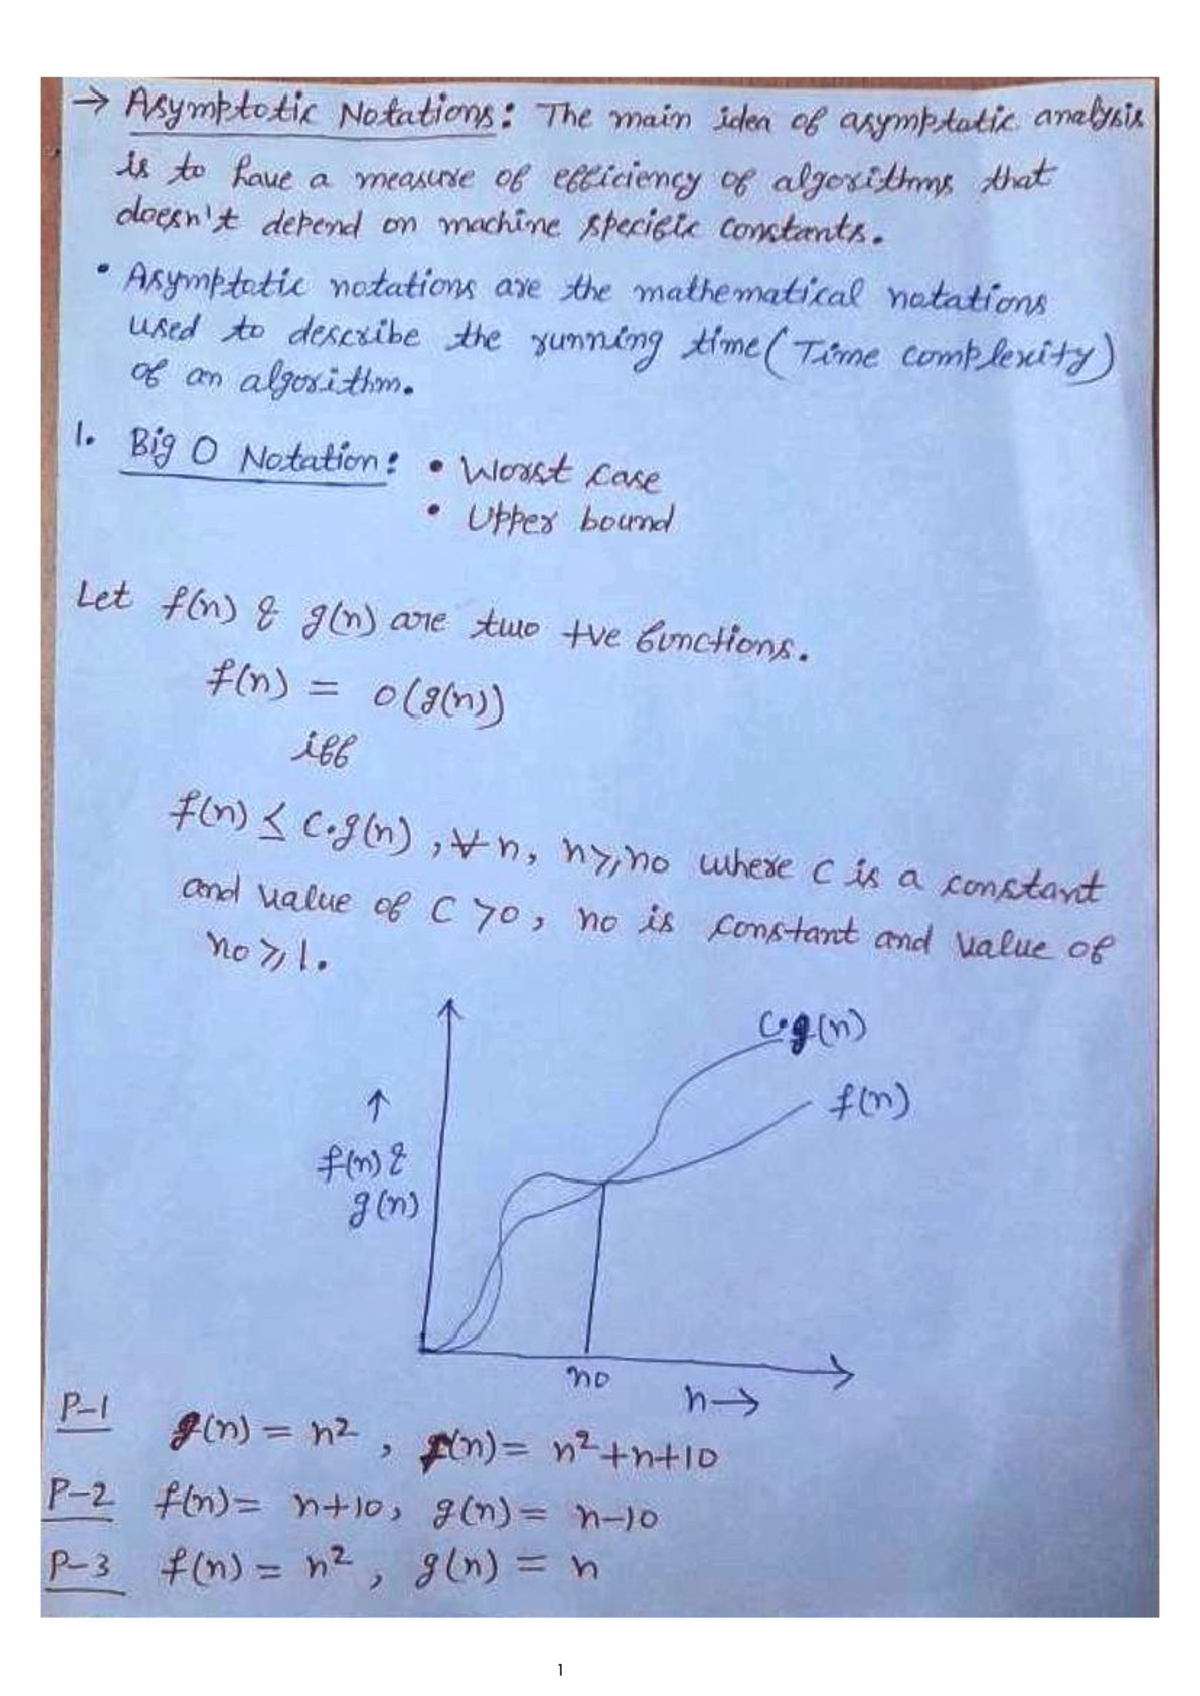 → Asymptotic Notations: The main idea of asymptatic analysis
is to have a measure of efficiency of algorithms that
doesn't depend on machine specific constants.
• Asymptotic notations are the mathematical notations
used to describe the running time (Time complexity)
of an algorithm.
1. Big O Notation: • Worst case
• Upper bound
Let f(n) & g(n) are two +ve functions.
f(n) = O(g(n))
iff
f(n) ≤ C.g(n), ∀ n, n ≥ no where C is a constant
and value of C >0, no is constant and value of
no ≥ 1.
C.g(n)
f(n)
↑
f(n) &
g(n)
no
n→
P-1 g(n) = n², f(n) = n²+n+10
P-2 f(n) = n+10, g(n) = n-10
P-3 f(n) = n², g(n) = n
1